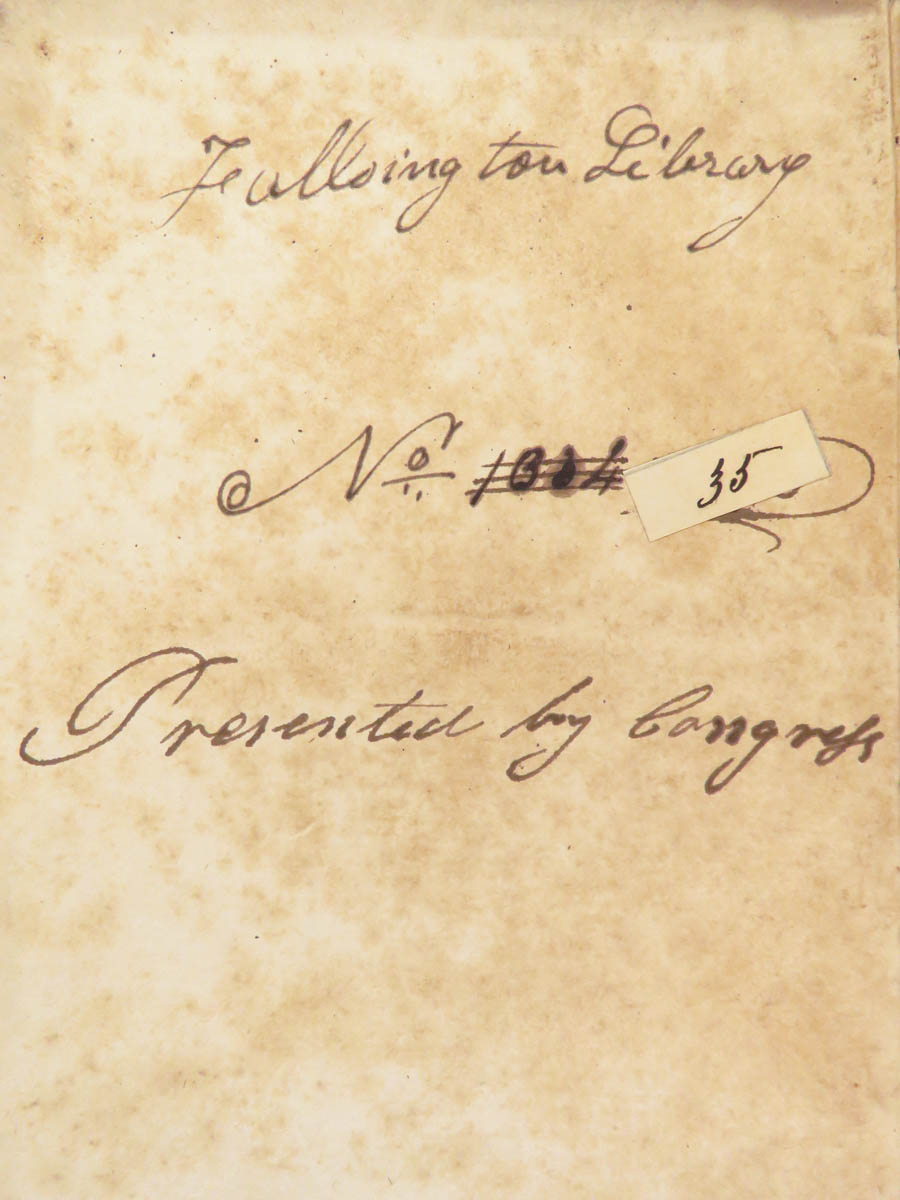 Fallsington Library
No. 35
Presented by Congress